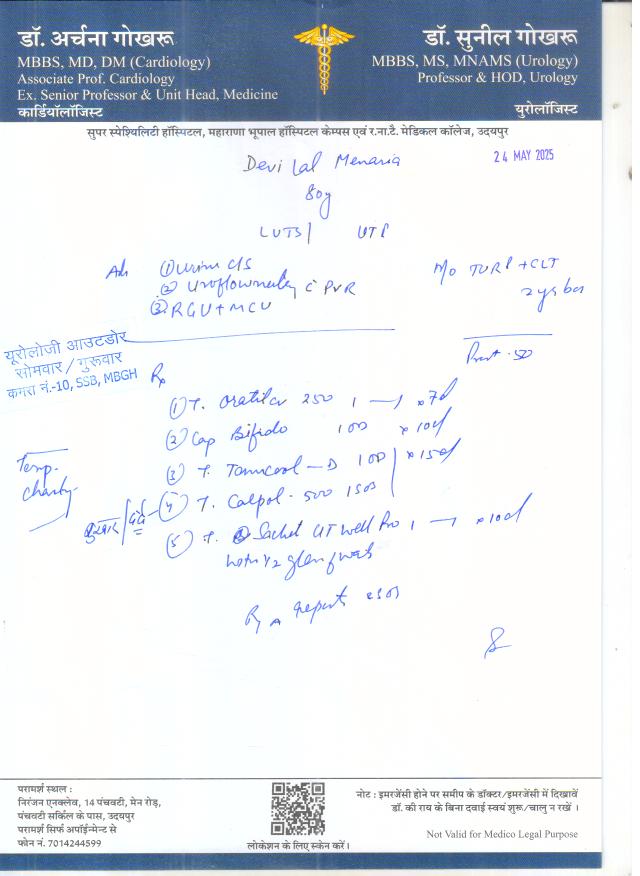 डॉ. अर्चना गोखरू
MBBS, MD, DM (Cardiology)
Associate Prof. Cardiology
Ex. Senior Professor & Unit Head, Medicine
कार्डियॉलॉजिस्ट
डॉ. सुनील गोखरू
MBBS, MS, MNAMS (Urology)
Professor & HOD, Urology
यूरोलॉजिस्ट
सुपर स्पेश्यिलिटी हॉस्पिटल, महाराणा भूपाल हॉस्पिटल केम्पस एवं र.ना.टै. मेडिकल कॉलेज, उदयपुर
Devi Lal Menaria
24 MAY 2025
80y
LUTS/ UTI
Adv ① urine C/S
② Uroflowmetry c̄ PVR
③ RGU + MCU
H/o TURP + CLT
2 yrs
यूरोलोजी आउटडोर
सोमवार / गुरूवार
कमरा नं.-10, SSB, MBGH
Rx
① T. 250 1 — 1 x 7d
② Cap Bifido 1OD x 10d
③ T. Tamcool - D 1OD x 15d
Temp.
charty
बुखार / दर्द
④ T. Calpol - 500 1SOS
⑤ Sachet UT Well Pro 1 — x 10d
in 1/2 glass
reports SOS
परामर्श स्थल :
निरंजन एनक्लेव, 14 पंचवटी, मेन रोड़,
पंचवटी सर्किल के पास, उदयपुर
परामर्श सिर्फ अपॉईन्मेन्ट से
फोन नं. 7014244599
लोकेशन के लिए स्केन करें।
नोट : इमरजेंसी होने पर समीप के डॉक्टर/इमरजेंसी में दिखावें
डॉ. की राय के बिना दवाई स्वयं शुरू/चालु न रखें ।
Not Valid for Medico Legal Purpose